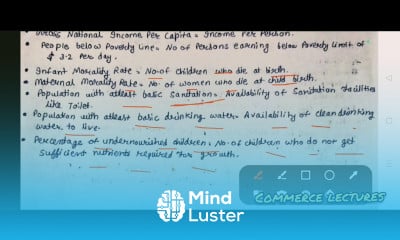 Gross National Income Per Capita = Income Per Person.
• People below Poverty Line = No of Persons earning below Poverty Limit of
$ 3.2 Per day.
• Infant Morality Rate = No of children who die at birth.
• Maternal Morality Rate = No of women who die at child birth.
• Population with atleast basic Sanitation = Availability of Sanitation facilities
like Toilet.
• Population with atleast basic drinking water = Availability of clean drinking
water to live.
• Percentage of undernourished children = No of children who do not get
sufficient nutrients required for growth.
COMMERCE LECTURES
Mind
Luster